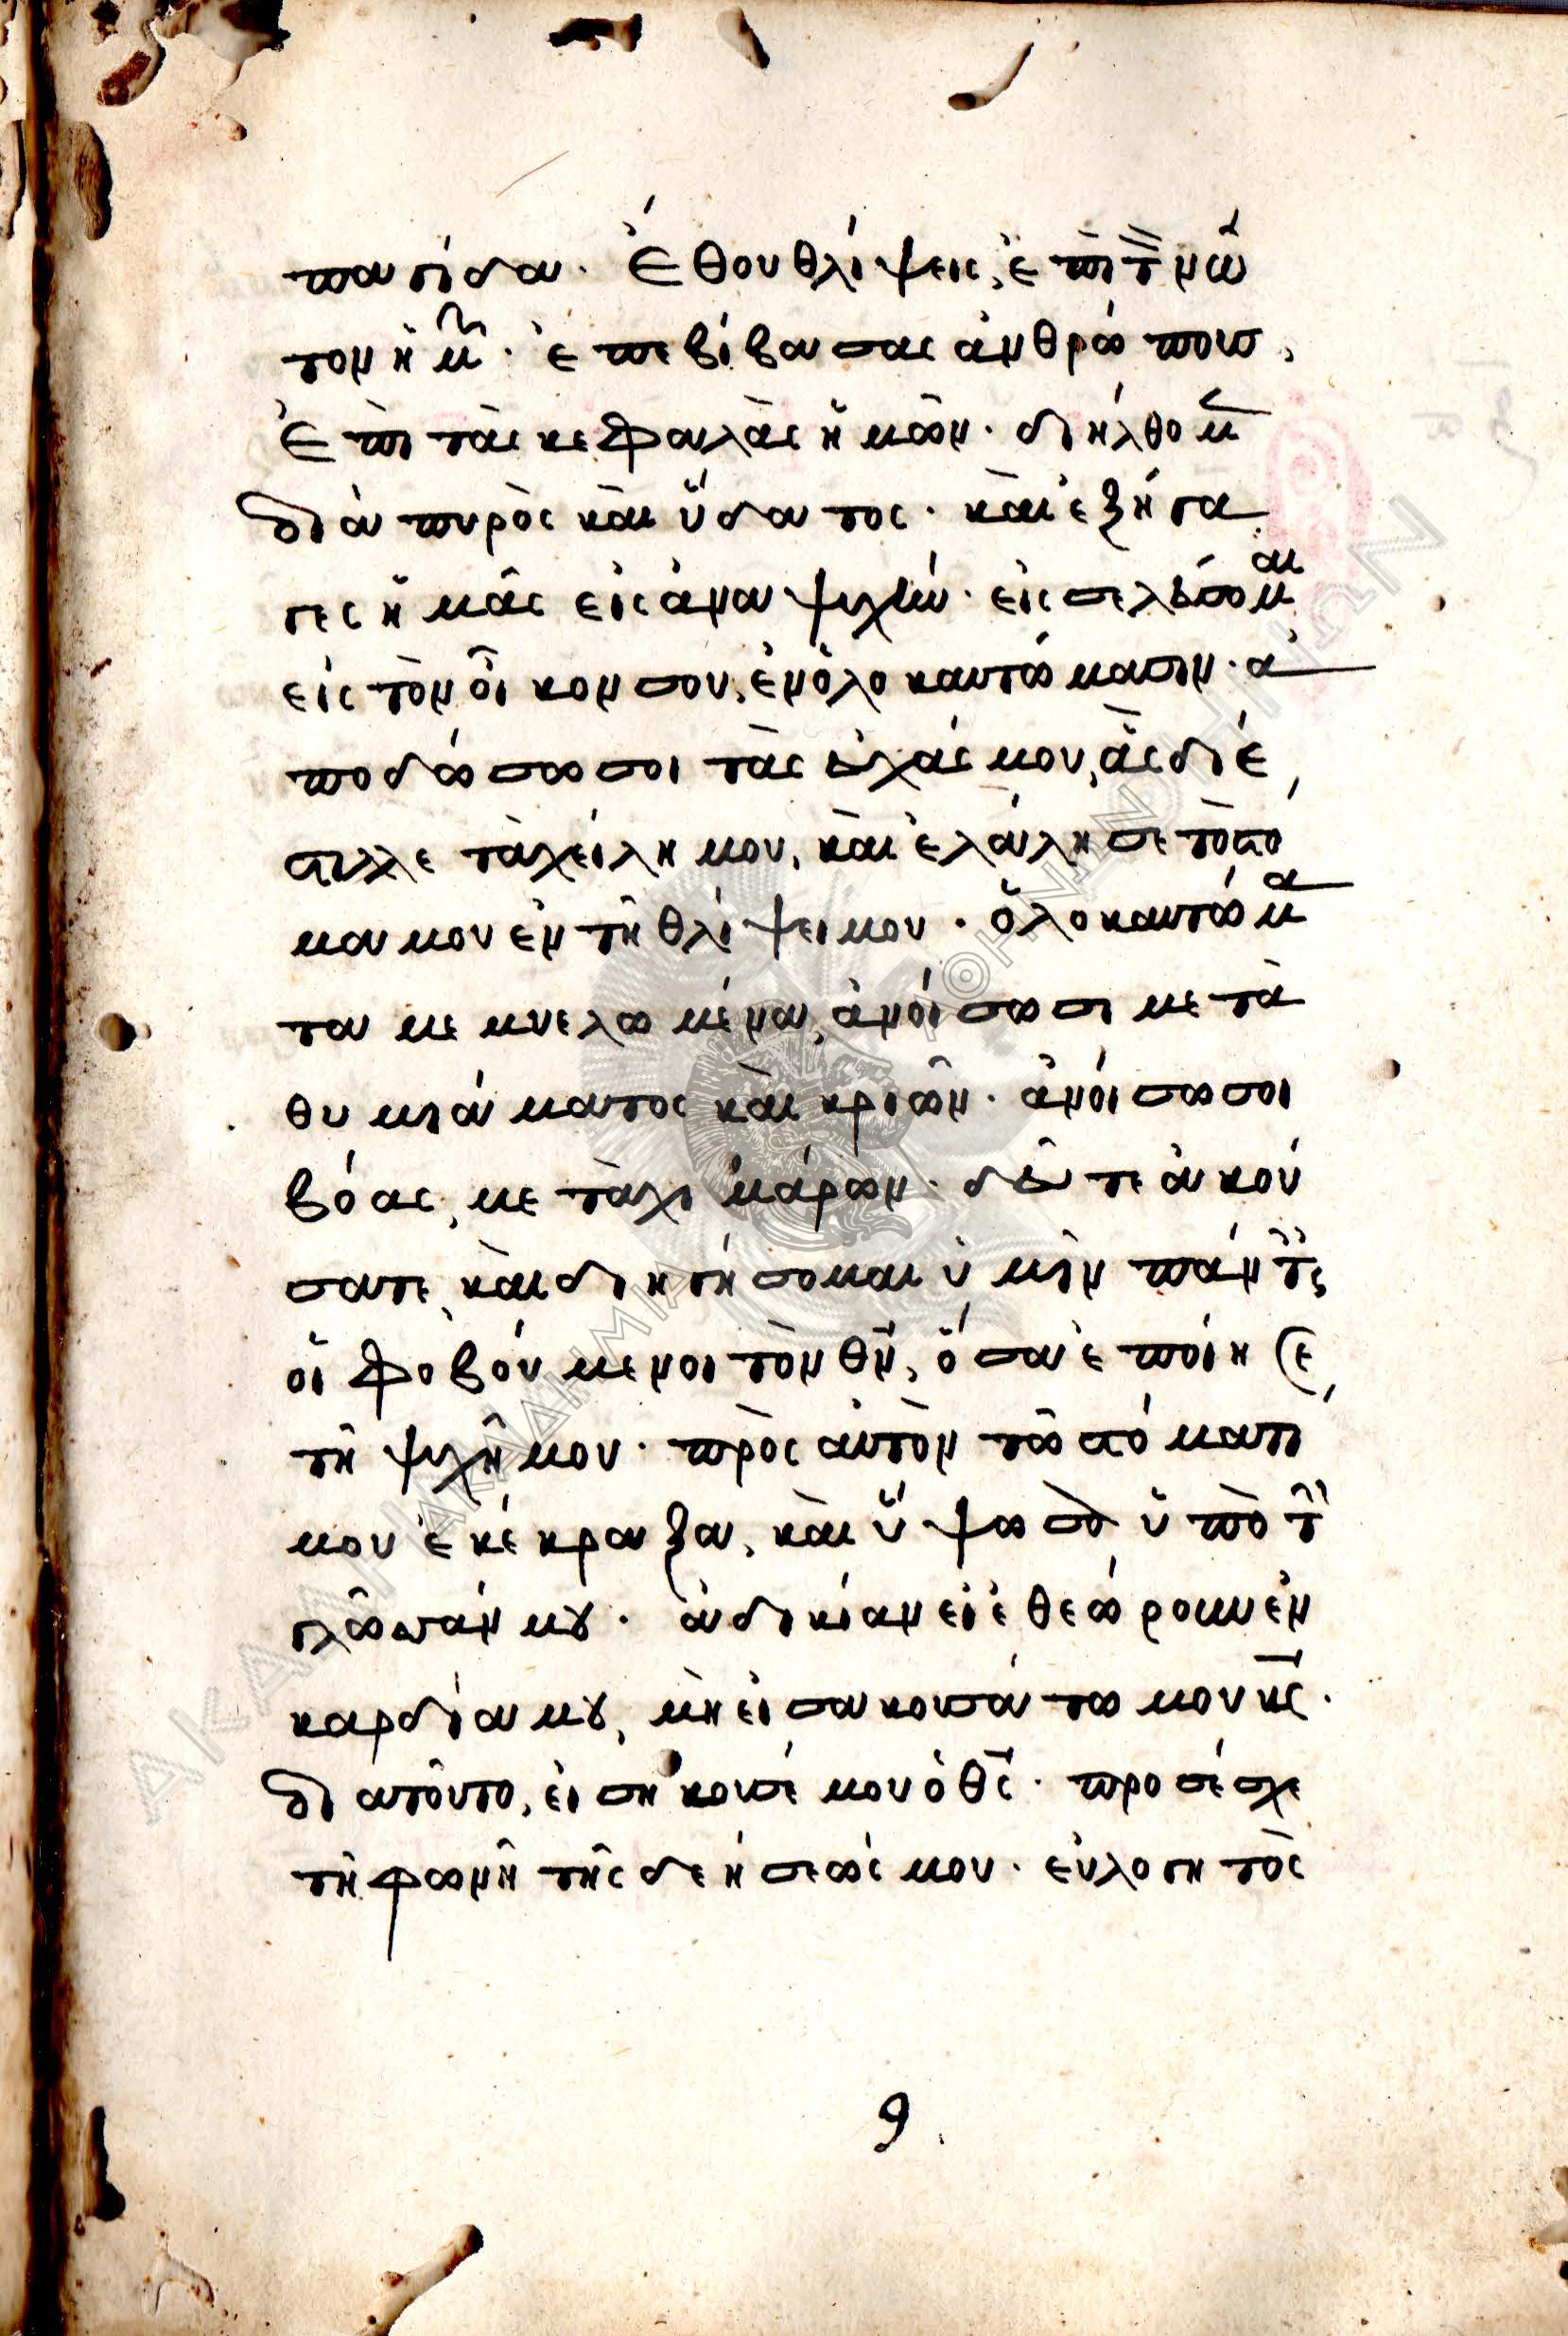 παγίδα. Ἔθου θλίψεις, ἐπὶ τ̀ νῶ
τον ἡμ̃. ἐπεβίβασας ἀνθρώπους,
Ἐπὶ τὰς κεφαλὰς ἡμῶν. διήλθομ̃
διὰ πυρὸς καὶ ὕδατος. καὶ ἐξήγα
γες ἡμᾶς εἰς ἀναψυχήν. εἰσελεύσομαι
εἰς τὸν οἶκον σου, ἐν ὁλοκαυτώμασιν. ἀ
ποδώσω σοι τὰς εὐχάς μου, ἃς διέ
στιλλε τὰ χείλη μου, καὶ ἐλάλησε τὸ στό
μα μου ἐν τῇ θλίψει μου. ὁλοκαυτώμα
τα μεμυελωμένα, ἀνοίσω σι μετὰ
θυμιάματος καὶ κριῶν. ἀνοίσω σοι
βόας, μετὰ χιμάρων. δεῦτε ἀκού
σατε, καὶ διηγήσομαι ὑμῖν πάντες
οἱ φοβούμενοι τὸν θν̄, ὅσα ἐποίησε
τῇ ψυχῇ μου. πρὸς αὐτὸν τῷ στόματι
μου ἐκέκραξα, καὶ ὕψωσα ὑπὸ τ̀
γλῶσσάν μου. ἀδικίαν εἰ ἐθεώρουν ἐν
καρδία μου, μὴ εἰσακουσάτω μου κς̄.
διατοῦτο, εἰσήκουσέ μου ὁ θς̄. προσέσχε
τῇ φωνῇ τῆς δεήσεώς μου. εὐλογητὸς
9
ΑΚΑΔΗΜΙΑ ΑΘΗΝΩΝ